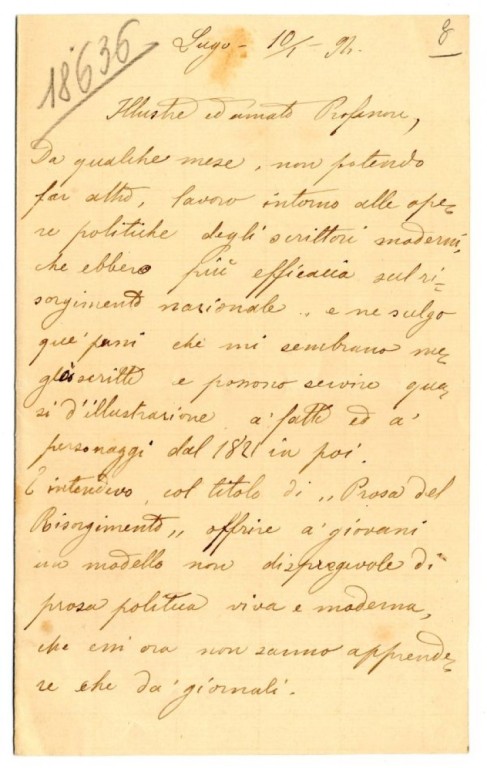 18636
8
Lugo - 10/1 - 94.
Illustre ed amato Professore,
Da qualche mese, non potendo
far altro, lavoro intorno alle ope-
re politiche degli scrittori moderni,
che ebbero più efficacia sul ri-
sorgimento nazionale, e ne sulgo
que' passi che mi sembrano me-
glio scritti e possono servire qua-
si d'illustrazione a' fatti ed a'
personaggi dal 1821 in poi.
E intendevo, col titolo di „Prosa del
Risorgimento„ offrire a' giovani
un modello non dispregevole di
prosa politica viva e moderna,
che essi ora non sanno apprende-
re che da' giornali.